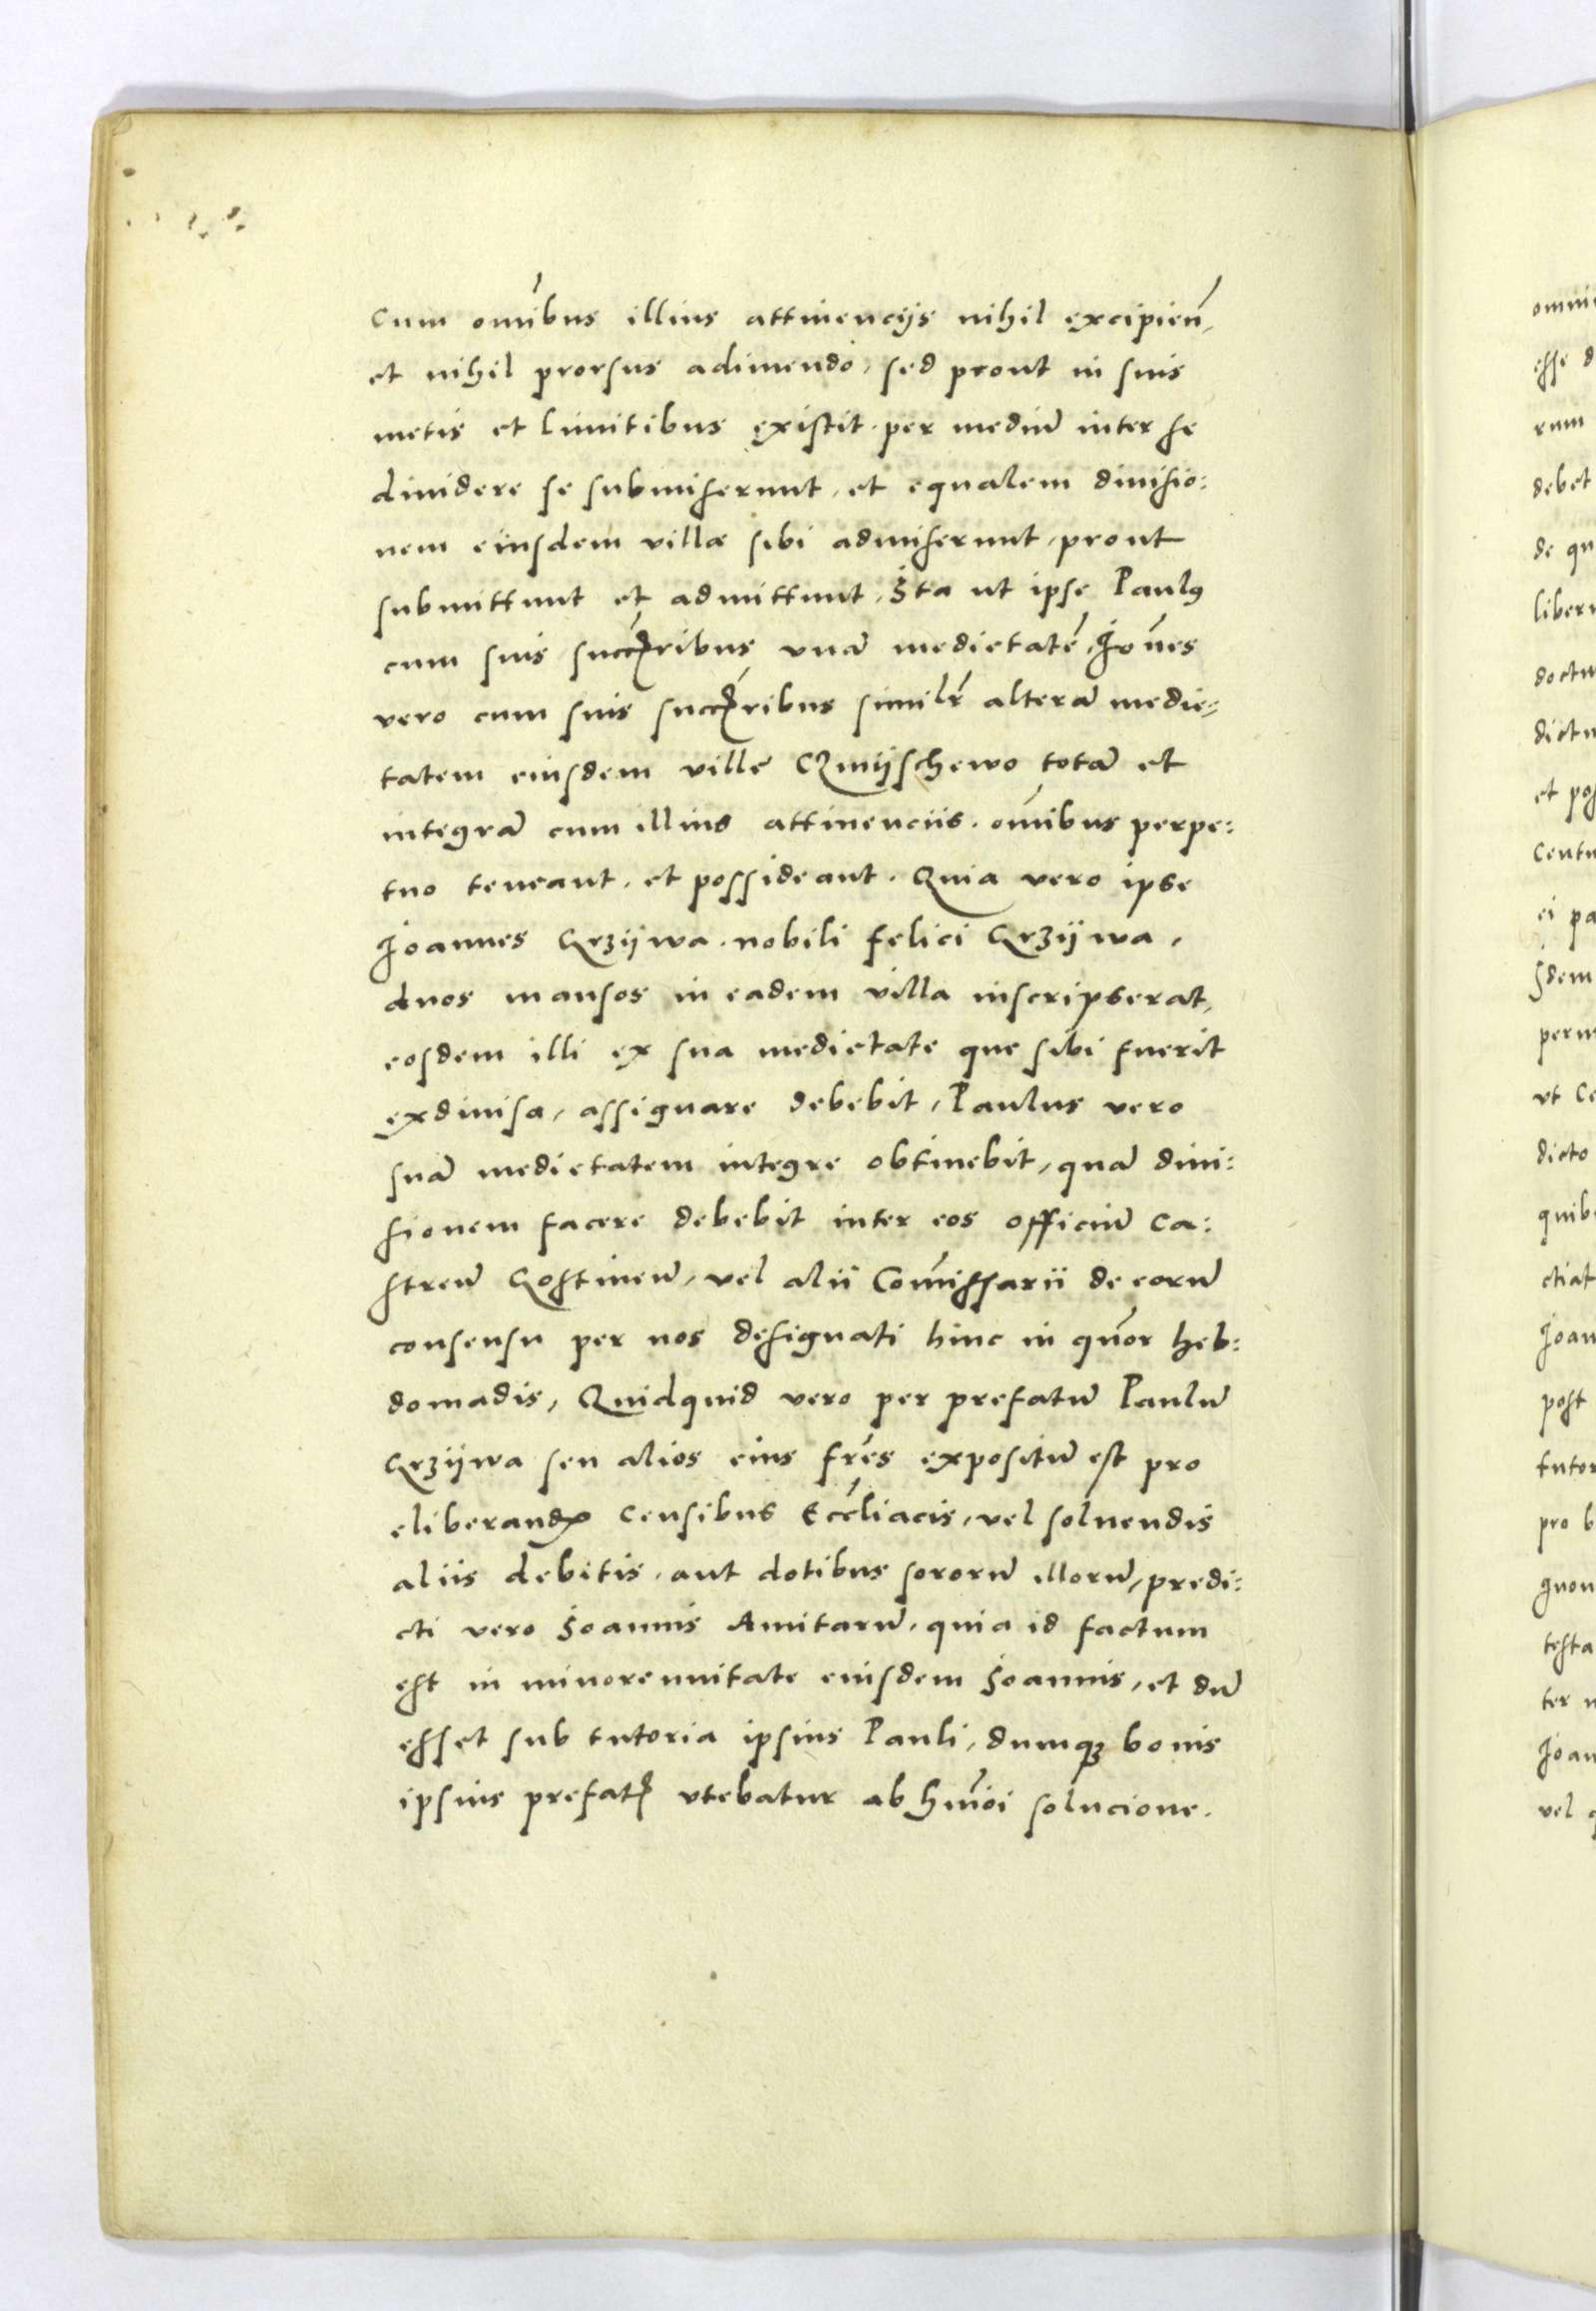 cum omībus illius attinencijs nihil excipień,
et nihil prorsus adimendo, sed prout in suis
metis et limitibus existit. per mediū inter se
diuidere se submiserunt, et equalem diuisio:
nem eiusdem villæ sibi admiserunt, prout
submittunt et admittunt, Ita ut ipse Paulꝰ
cum suis succ̃ribus vnā medietatē, Joñes
vero cum suis succ̃ribus similr̃ alterā medie:
tatem eiusdem ville Czmijschewo totā et
integrā cum illius attinenciis. om̃ibus perpe:
tuo teneant, et possideant. Quia vero ipse
Joannes Grzijwa. nobili Felici Grzijwa,
duos mansos in eadem villa inscripserat,
eosdem illi ex sua medietate que sibi fuerit
exdiuisa, assignare debebit, Paulus vero
suā medietatem integre obtinebit, quā diui:
sionem facere debebit inter eos officiū Ca:
streñ Gostineñ, vel alii Com̃issarii de eorū
consensu per nos designati hinc in quõr heb:
domadis, Quidquid vero per prefatū Paulū
Grzijwa seu alios eius fres̃ expositū est pro
eliberandꝭ censibus Eccĺiacis, vel soluendis
aliis debitis, aut dotibus sororū illorū, predi:
cti vero Joannis Amitarū, quia id factum
est in minorennitate eiusdem Joannis, et dū
esset sub tutoria ipsius Pauli, dumqꝫ bonis
ipsius prefatꝭ vtebatur ab hm̃oi solucione.
omni
esse d
rum
debet
de qu
liber
doctu
dictu
et pos
centu
ei pa
Idem
perm
vt Ce
dicto
quib
ctiat
Joan
post
tutor
pro b
quou
testa
ter n
Joan
vel q